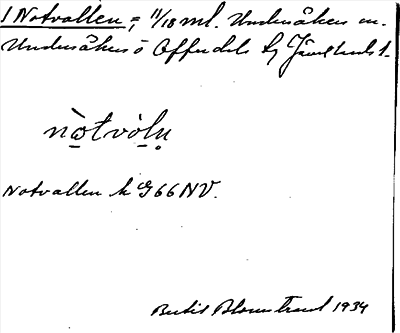 1 Notvallen = 11/18 ml. Undersåkers sn.
Undersåkers o Offerdals tg Jämtlands l.
nòtvòlņ
Notvallen k G66NV.
Bertil Blomstrand 1934